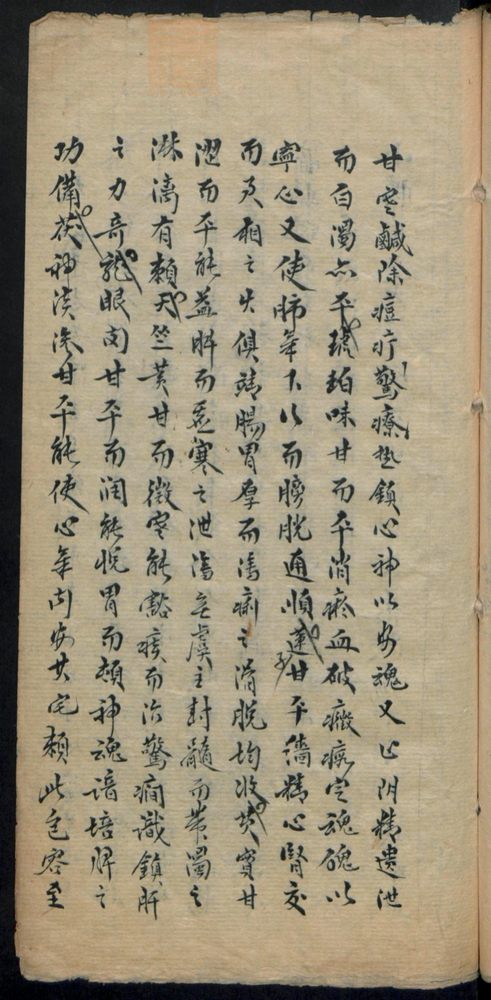 甘寒鹹除痘疔驚療热鎮心神以安魂又止阴精遗泄
而白濁亦平琥珀味甘而平消瘀血破癥瘕定魂魄以
寧心又使肺氣下以而膀胱通順蓮子甘平濇精心腎交
而君相之火俱靖腸胃厚而濇痢之滑脫均收芡實甘
澀而平能益脾而虛寒之泄瀉無虞主封髓而帶濁之
淋漓有賴天竺黃甘而微寒能豁痰而治驚癇識鎮肝
之力奇龍眼肉甘平而润能悅胃而頼神魂諳培脾之
功備茯神淡滲甘平能使心氣內安其宅頼此包容至